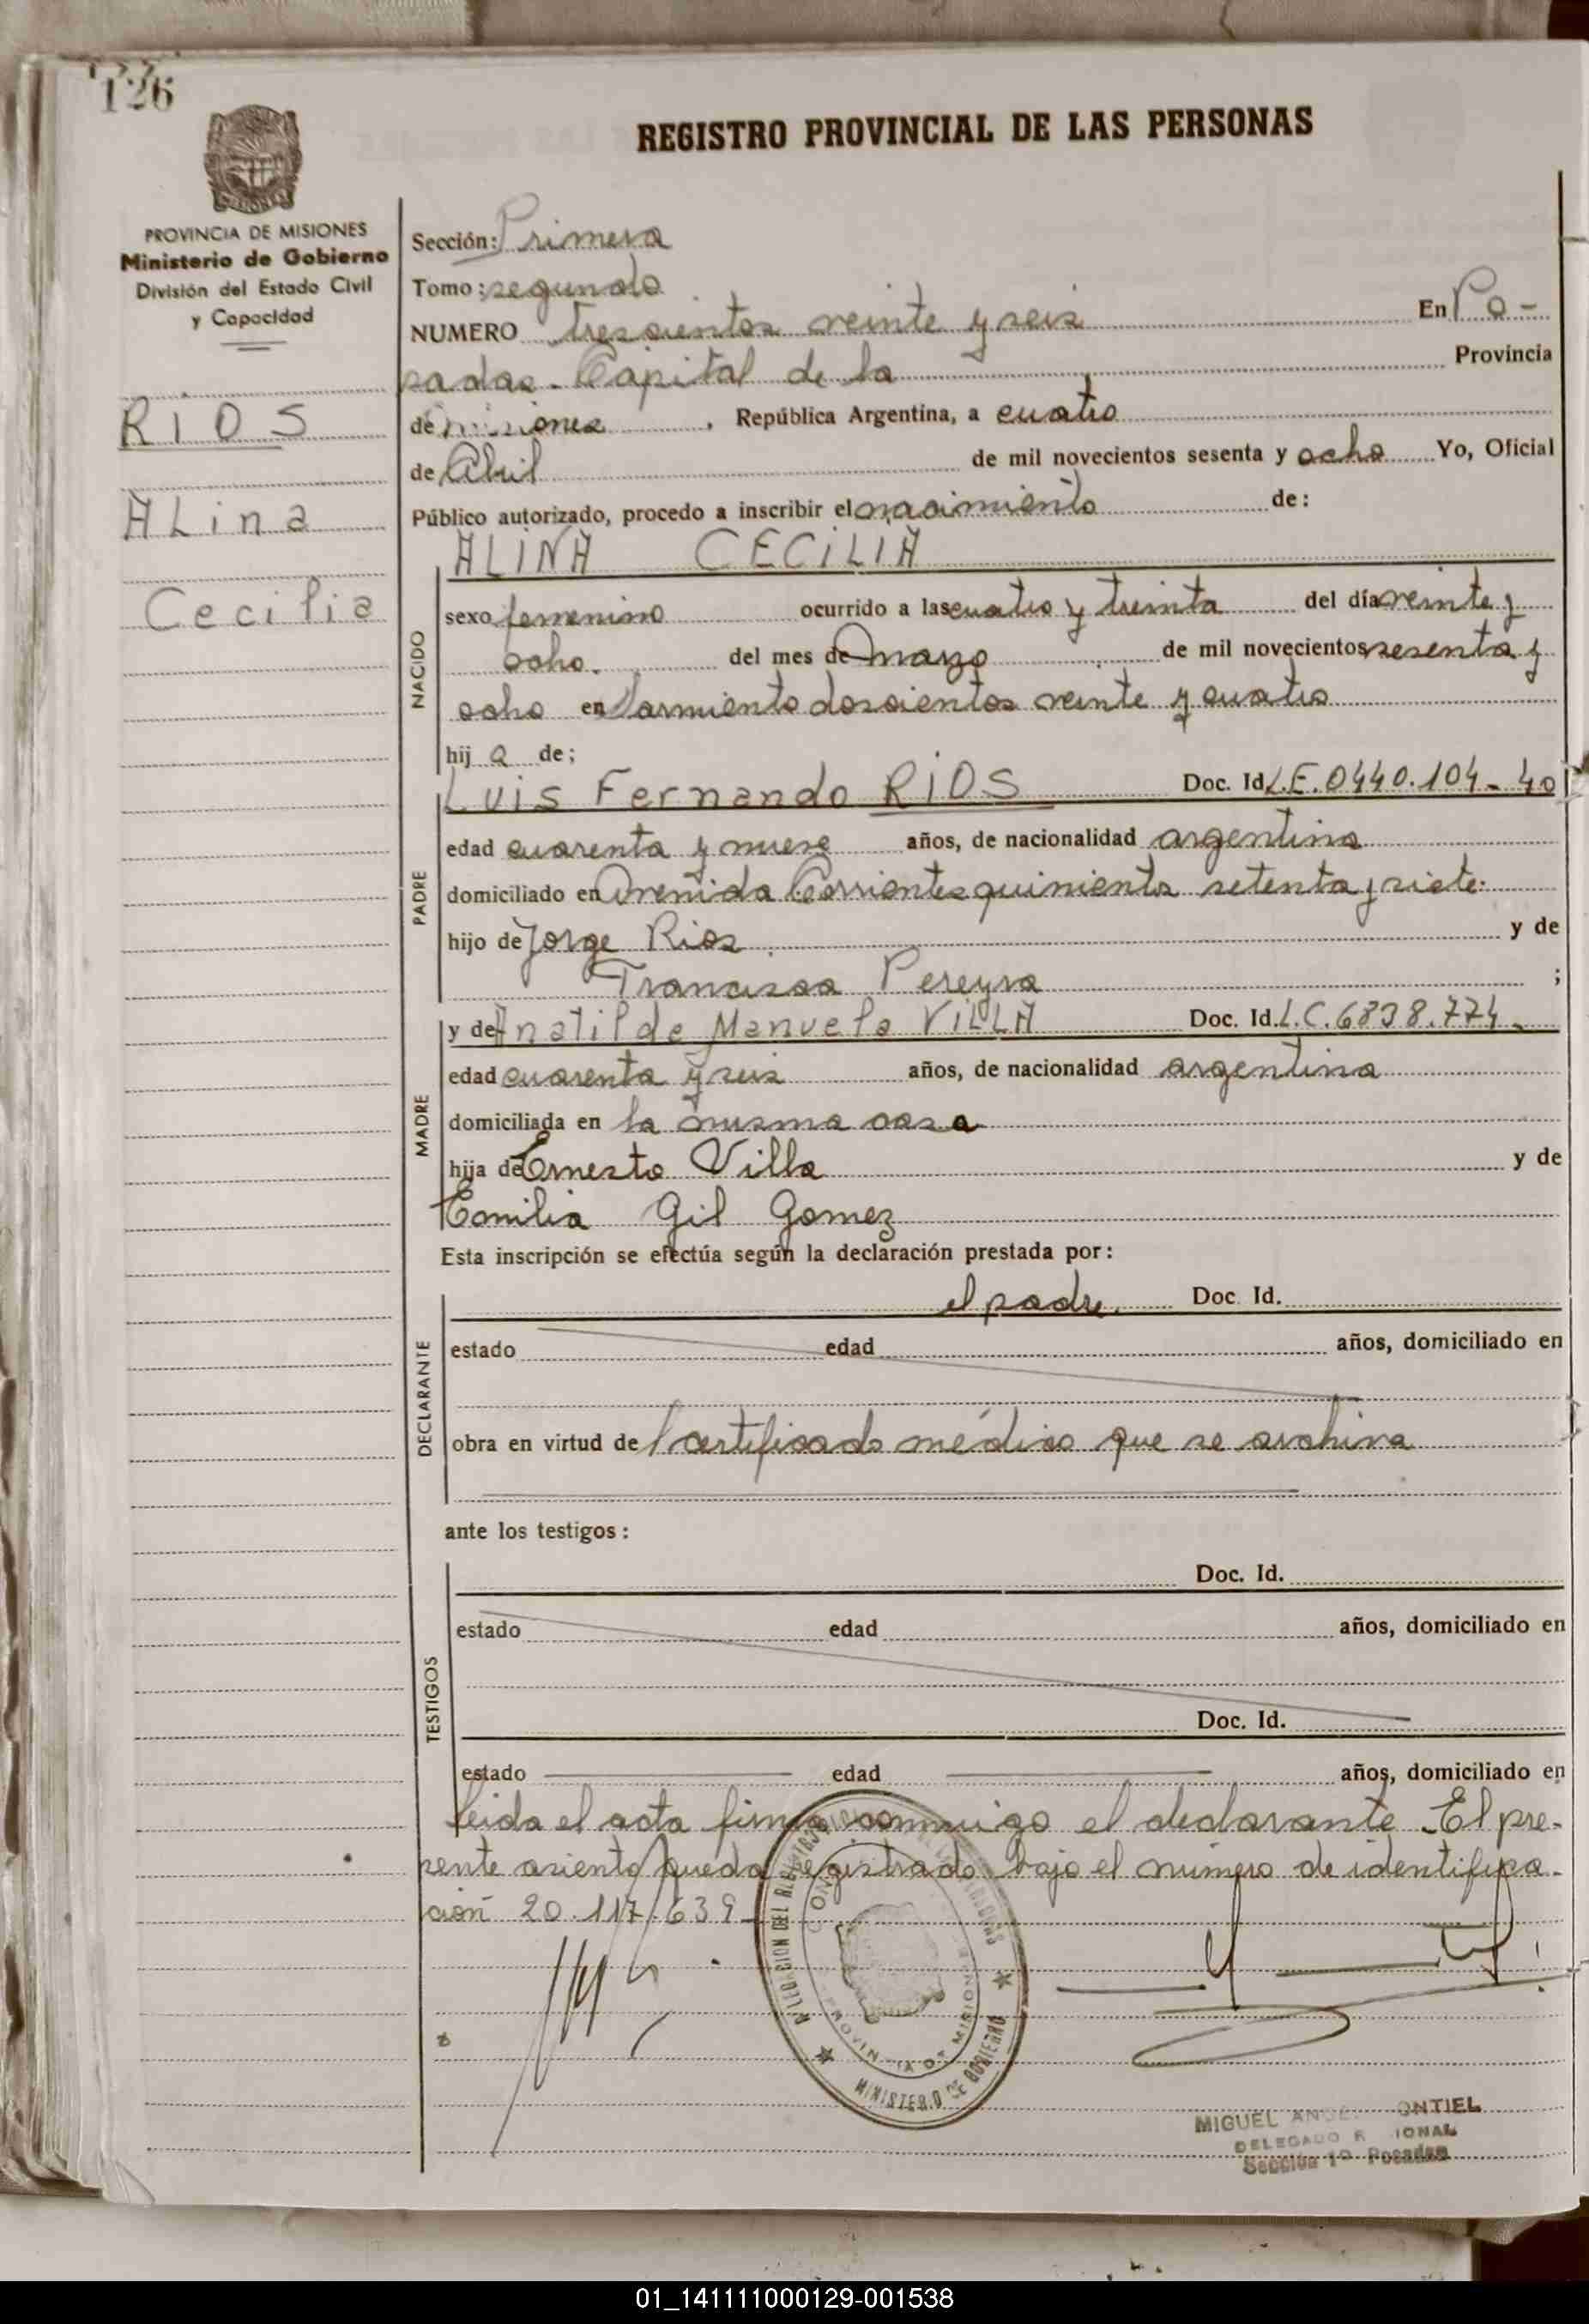 126
REGISTRO PROVINCIAL DE LAS PERSONAS
PROVINCIA DE MISIONES
Ministerio de Gobierno
División del Estado Civil
y Capacidad
RIOS
ALina
Cecilia
Sección: Primera
Tomo: segundo
NUMERO Trescientos veinte y seis En Po-
sadas. Capital de la Provincia
de Misiones, República Argentina, a cuatro
de Abril de mil novecientos sesenta y ocho Yo, Oficial
Público autorizado, procedo a inscribir el nacimiento de:
ALINA CECILIA
NACIDO
sexo femenino ocurrido a las cuatro y treinta del día veinte y
ocho. del mes de marzo de mil novecientos sesenta y
ocho en Sarmiento doscientos veinte y cuatro
hij a de;
PADRE
Luis Fernando RIOS Doc. Id. L.E. 0440.104-40
edad cuarenta y nueve años, de nacionalidad argentina
domiciliado en Avenida Corrientes quinientos setenta y siete.
hijo de Jorge Rios y de
Francisca Pereyra ;
MADRE
y de Anatilde Manuela VILLA Doc. Id. L.C. 6838.774.
edad cuarenta y seis años, de nacionalidad argentina
domiciliada en la misma casa
hija de Ernesto Villa y de
Emilia Gil Gomez
Esta inscripción se efectúa según la declaración prestada por:
DECLARANTE
el padre. Doc. Id.
estado edad años, domiciliado en
obra en virtud de l certificado médico que se archiva
ante los testigos:
TESTIGOS
Doc. Id.
estado edad años, domiciliado en
Doc. Id.
estado edad años, domiciliado en
leida el acta firma conmigo el declarante. El pre-
sente asiento queda registrado bajo el número de identifica-
ción 20.117.639
MINISTERIO DE GOBIERNO
MIGUEL
Sección 1º Posadas
01_141111000129-001538